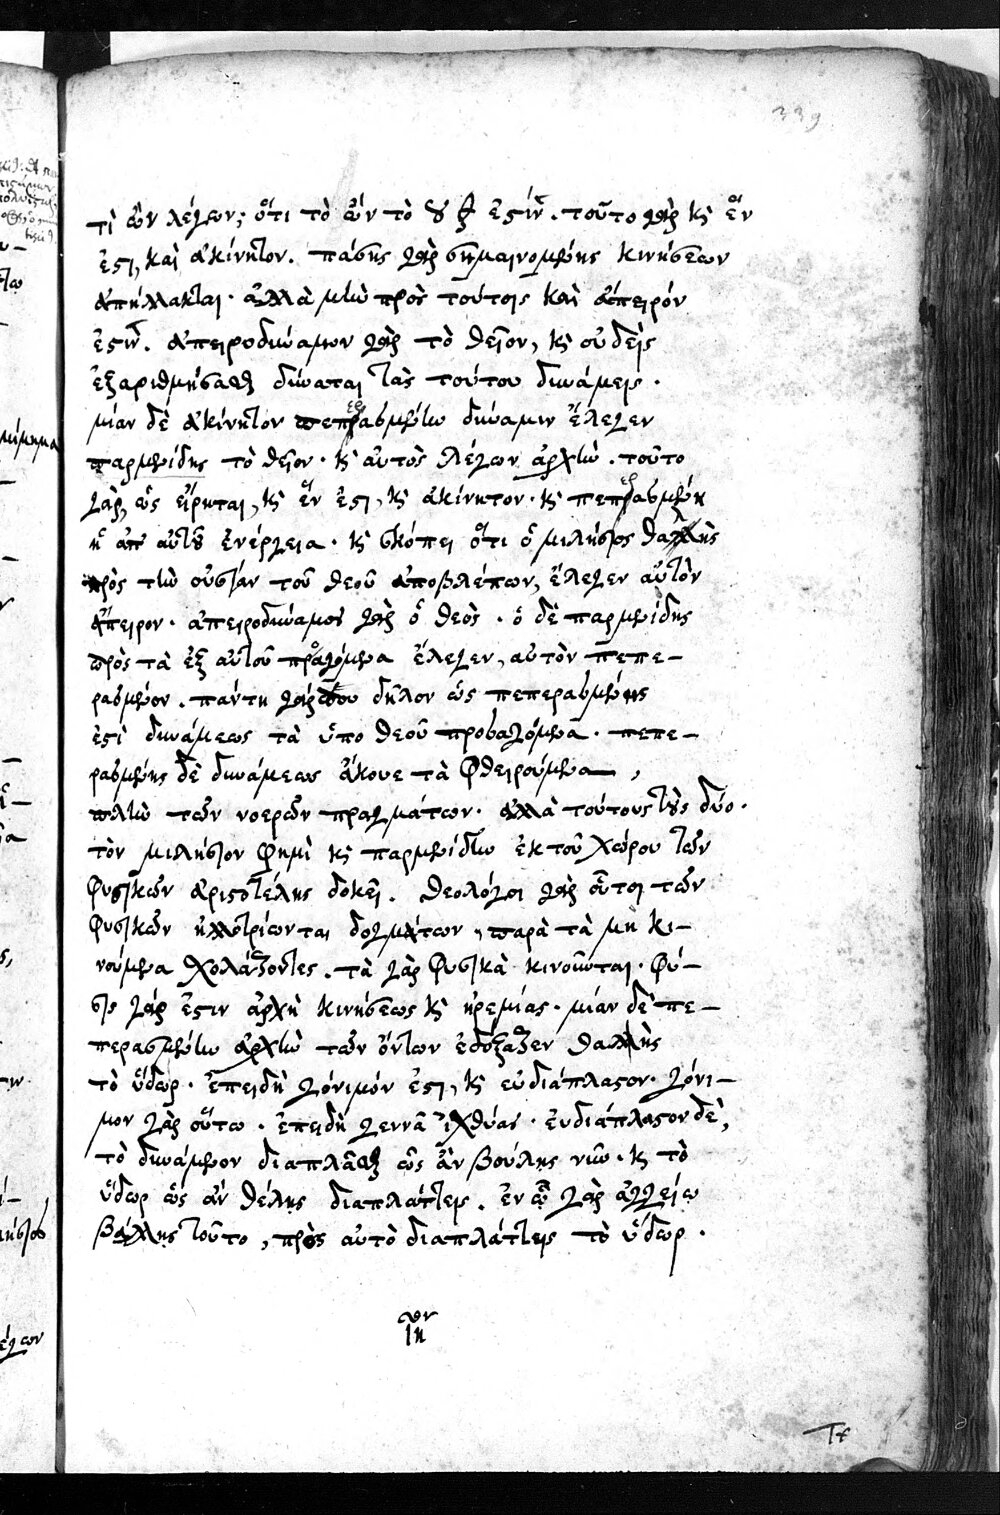 339
τὶ ὢν λέγων; ὅτι τὸ ὂν τὸ ἐστίν. τοῦτο γὰρ κ̀ ἕν
ἐστι, καὶ ἀκίνητον. πάσης γὰρ σημαινομένης κινήσεων
ἀπήλλακται. ἀλλὰ μὴν πρὸς τούτοις καὶ ἄπειρόν
ἐστίν. ἀπειροδύναμον γὰρ τὸ θεῖον, κ̀ οὐδεὶς
ἐξαριθμήσασθαι δύναται τὰς τούτου δυνάμεις.
μίαν δὲ ἀκίνητον πεπερασμένην δύναμιν ἔλεγεν
παρμενίδης τὸ θεῖον. κ̀ αὐτὸς λέγων ἀρχὴν. τοῦτο
γὰρ, ὡς εἴρηται, κ̀ ἕν ἐστι, κ̀ ἀκίνητον. κ̀ πεπερασμένη
ἡ ἀπ αὐτοῦ ἐνέργεια. κ̀ σκόπει ὅτι ὁ μιλήσιος θαλῆς
πρὸς τὴν οὐσίαν τοῦ θεοῦ ἀποβλέπων, ἔλεγεν αὐτὸν
ἄπειρον. ἀπειροδύναμος γὰρ ὁ θεός. ὁ δὲ παρμενίδης
πρὸς τὰ ἐξ αὐτοῦ προαγόμενα ἔλεγεν, αὐτὸν πεπε-
ρασμένον. πάντη γάρ που δῆλον ὡς πεπερασμένης
ἐστὶ δυνάμεως τὰ ὑπο θεοῦ προσαγόμενα. πεπε-
ρασμένης δὲ δυνάμεως ἄκουε τὰ φθειρούμενα,
πλὴν τῶν νοερῶν πραγμάτων. ἀλλὰ τούτους τοὺς δύο.
τὸν μιλήσιον φημὶ κ̀ παρμενίδην ἐκ τοῦ χώρου τῶν
φυσικῶν ἀριστοτέλης δοκεῖ. θεολόγοι γὰρ οὗτοι τῶν
φυσικῶν ἠλλοτρίωνται δογμάτων, παρὰ τὰ μὴ κι-
νούμενα σχολάζοντες. τὰ γὰρ φυσικὰ κινοῦνται. φύ-
σις γάρ ἐστιν ἀρχὴ κινήσεως κ̀ ἠρεμίας. μίαν δὲ πε-
περασμένην ἀρχὴν τῶν ὄντων ἐδόξαζεν θαλῆς
τὸ ὕδωρ. ἐπειδὴ γόνιμόν ἐστι, κ̀ εὐδιάπλαστον. γόνι-
μον γὰρ οὕτω. ἐπειδὴ γεννᾶ ἰχθύας. εὐδιάπλαστον δὲ,
τὸ δυνάμενον διαπλᾶσαι ὡς ἂν βούλῃς νῦν. κ̀ τὸ
ὕδωρ ὡς ἂν θέλῃς διαπλάττεις. ἐν ᾧ γὰρ ἀγγείῳ
βάλλῃς τοῦτο, πρὸς αὐτὸ διαπλάττεις τὸ ὕδωρ.